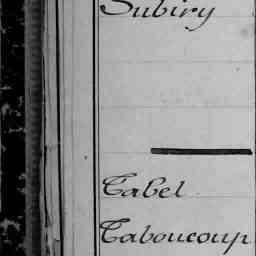 Subiry
Tabel
Taboucoup